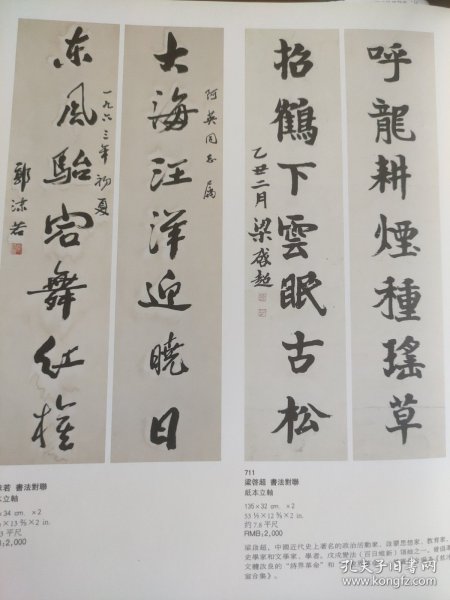 呼龍耕煙種瑤草
招鶴下雲眠古松
乙丑二月 梁啟超
大海汪洋迎曉日
阿英同志 属
东風駘宕舞红旗
一九六三年初夏
郭沫若
若 書法對聯
本立軸
×34 cm. ×2
×2 in.
平尺
RMB:2,000
711
梁啓超 書法對聯
紙本立軸
135×32 cm. ×2
×2 in.
约 7.8 平尺
RMB:2,000
梁啟超,中國近代史上著名的政治活動家、啟蒙思想家、教育家、
史學家和文學家、學者。戊戌變法(百日維新)領袖之一。曾倡導
文體改良的“詩界革命”和
室合集》。
孔夫子旧书网